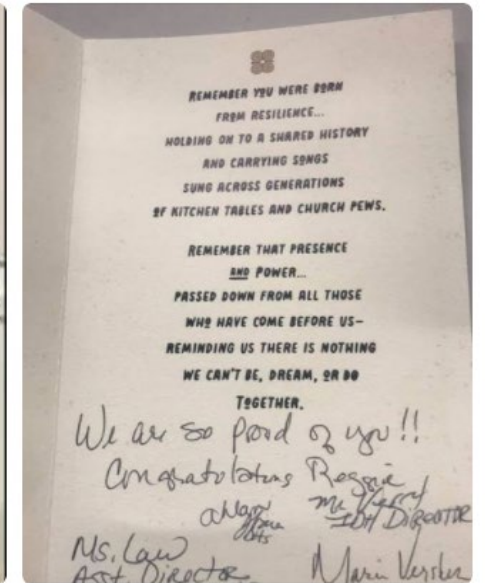 REMEMBER YOU WERE BORN
FROM RESILIENCE...
HOLDING ON TO A SHARED HISTORY
AND CARRYING SONGS
SUNG ACROSS GENERATIONS
OF KITCHEN TABLES AND CHURCH PEWS.
REMEMBER THAT PRESENCE
AND POWER...
PASSED DOWN FROM ALL THOSE
WHO HAVE COME BEFORE US—
REMINDING US THERE IS NOTHING
WE CAN'T BE, DREAM, OR DO
TOGETHER.
We are so proud of you!!
Congratulations Reggie
DIRECTOR
Ms. Law
Asst. Director